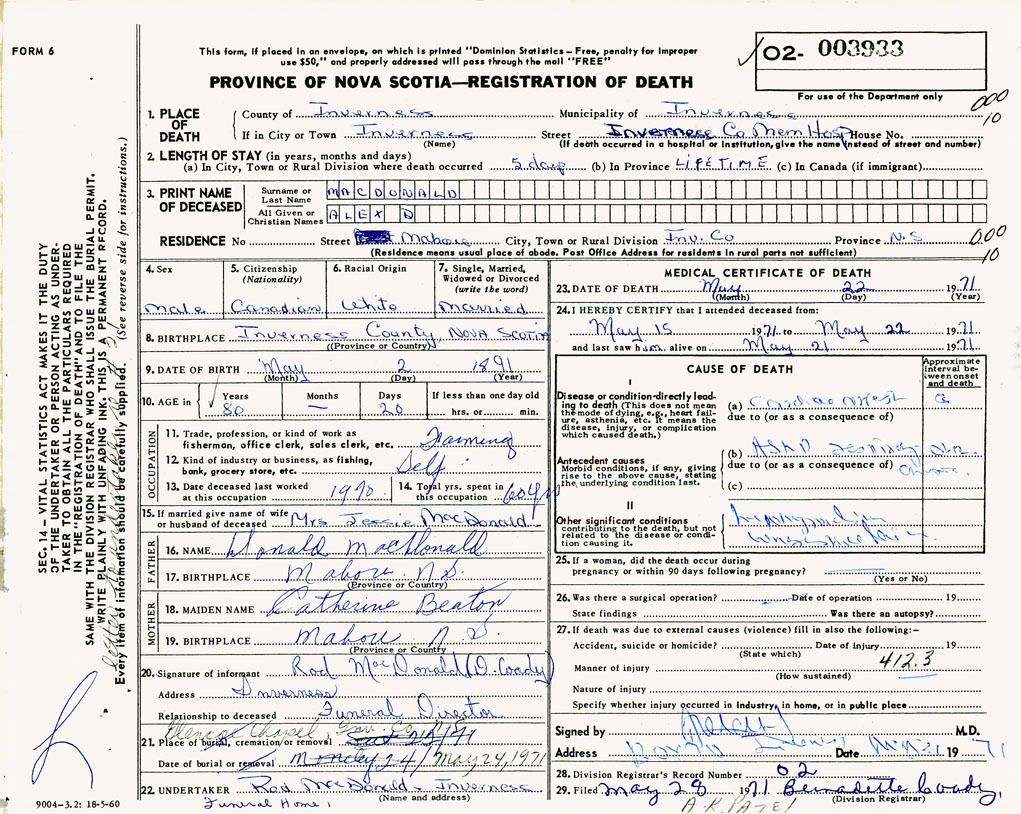 FORM 6
This form, if placed in an envelope, on which is printed "Dominion Statistics—Free, penalty for improper
use $50," and properly addressed will pass through the mail "FREE"
O2- 003933
For use of the Department only
PROVINCE OF NOVA SCOTIA—REGISTRATION OF DEATH
000
10
1. PLACE OF DEATH
County of Inverness Municipality of Inverness
If in City or Town Inverness Street Inverness Co Mem Hosp House No.
(Name) (If death occurred in a hospital or institution, give the name instead of street and number)
2. LENGTH OF STAY (in years, months and days)
(a) In City, Town or Rural Division where death occurred 5 days (b) In Province LIFETIME (c) In Canada (if immigrant)
3. PRINT NAME OF DECEASED
Surname or Last Name MACDONALD
All Given or Christian Names ALEX D
RESIDENCE No Street Mabou City, Town or Rural Division Inv. Co Province N.S
(Residence means usual place of abode. Post Office Address for residents in rural parts not sufficient)
000
10
4. Sex
male
5. Citizenship (Nationality)
Canadian
6. Racial Origin
White
7. Single, Married, Widowed or Divorced (write the word)
married
8. BIRTHPLACE Inverness County, NOVA SCOTIA
(Province or Country)
9. DATE OF BIRTH May 2 1891
(Month) (Day) (Year)
10. AGE in Years 80 Months — Days 20 If less than one day old hrs. or min.
OCCUPATION
11. Trade, profession, or kind of work as fisherman, office clerk, sales clerk, etc. Farming
12. Kind of industry or business, as fishing, bank, grocery store, etc. Self
13. Date deceased last worked at this occupation 1970
14. Total yrs. spent in this occupation 60 yrs
15. If married give name of wife or husband of deceased Mrs Jessie MacDonald
FATHER
16. NAME Donald MacDonald
17. BIRTHPLACE Mabou N.S.
(Province or Country)
MOTHER
18. MAIDEN NAME Catherine Beaton
19. BIRTHPLACE Mabou N.S.
(Province or Country)
20. Signature of informant Rod MacDonald (D. Coady)
Address Inverness
Relationship to deceased Funeral Director
21. Place of burial, cremation or removal Glencoe Chapel, Inv. Co. N.S
Date of burial or removal Monday 24/ May 24, 1971
22. UNDERTAKER Rod MacDonald - Inverness
(Name and address)
Funeral Home,
MEDICAL CERTIFICATE OF DEATH
23. DATE OF DEATH May 22 1971
(Month) (Day) (Year)
24. I HEREBY CERTIFY that I attended deceased from:
May 15 1971 to May 22 1971
and last saw him alive on May 21 1971
CAUSE OF DEATH
Approximate interval between onset and death
I
Disease or condition directly leading to death (This does not mean the mode of dying, e.g., heart failure, asthenia, etc. It means the disease, injury, or complication which caused death.)
(a) Cardiac arrest
due to (or as a consequence of)
Antecedent causes
Morbid conditions, if any, giving rise to the above cause, stating the underlying condition last.
(b) ASHD
due to (or as a consequence of)
(c)
II
Other significant conditions contributing to the death, but not related to the disease or condition causing it.
25. If a woman, did the death occur during pregnancy or within 90 days following pregnancy?
(Yes or No)
26. Was there a surgical operation? Date of operation 19
State findings Was there an autopsy?
27. If death was due to external causes (violence) fill in also the following:—
Accident, suicide or homicide? Date of injury 19
(State which)
412.3
Manner of injury
(How sustained)
Nature of injury
Specify whether injury occurred in industry, in home, or in public place
Signed by M.D.
Address Date 19 71
28. Division Registrar's Record Number 02
29. Filed May 28 1971 Bernadette Coady,
(Division Registrar)
A.R. PATEL
SEC. 14 – VITAL STATISTICS ACT MAKES IT THE DUTY
OF THE UNDERTAKER OR PERSON ACTING AS UNDER-
TAKER TO OBTAIN ALL THE PARTICULARS REQUIRED
IN THE "REGISTRATION OF DEATH" AND TO FILE THE
SAME WITH THE DIVISION REGISTRAR WHO SHALL ISSUE THE BURIAL PERMIT.
WRITE PLAINLY WITH UNFADING INK. THIS IS A PERMANENT RECORD.
Every item of information should be carefully supplied. (See reverse side for instructions.)
9004-3.2: 18-5-60